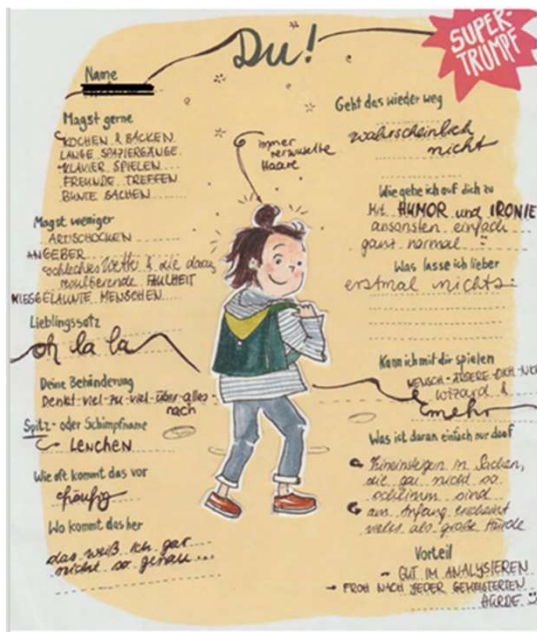 Du!
SUPER-
TRUMPF
Name
Magst gerne
KOCHEN & BACKEN
LANGE SPAZIERGÄNGE
KLAVIER SPIELEN
FREUNDE TREFFEN
BUNTE SACHEN
Magst weniger
ARTISCHOCKEN
ANGEBER
schlechtes Wetter & die daraus
resultierende FAULHEIT
MIESGELAUNTE MENSCHEN
Lieblingssatz
oh la la
Deine Behinderung
Denkt-viel-zu-viel-über-alles-
nach
Spitz- oder Schimpfname
LENCHEN
Wie oft kommt das vor
häufig
Wo kommt das her
das weiß ich gar
nicht so genau...
immer
verwuselte
Haare
Geht das wieder weg
wahrscheinlich
nicht
Wie gehe ich auf dich zu
Mit HUMOR und IRONIE
ansonsten einfach
ganz normal
Was lasse ich lieber
erstmal nichts
Kann ich mit dir spielen
MENSCH-ÄRGERE-DICH-NICHT
wizard &
mehr
Was ist daran einfach nur doof
Hineinsteigern in Sachen,
die gar nicht so
schlimm sind
am Anfang erscheint
vieles als große Hürde
Vorteil
- GUT IM ANALYSIEREN
→ FROH NACH JEDER GEMEISTERTEN
HÜRDE :)